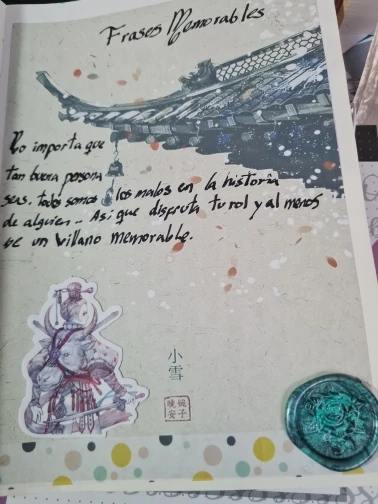 Frases Memorables
No importa que
tan buena persona
seas. todos somos los malos en la historia
de alguien.. Asi que disfruta tu rol y al menos
se un villano memorable.
小
雪